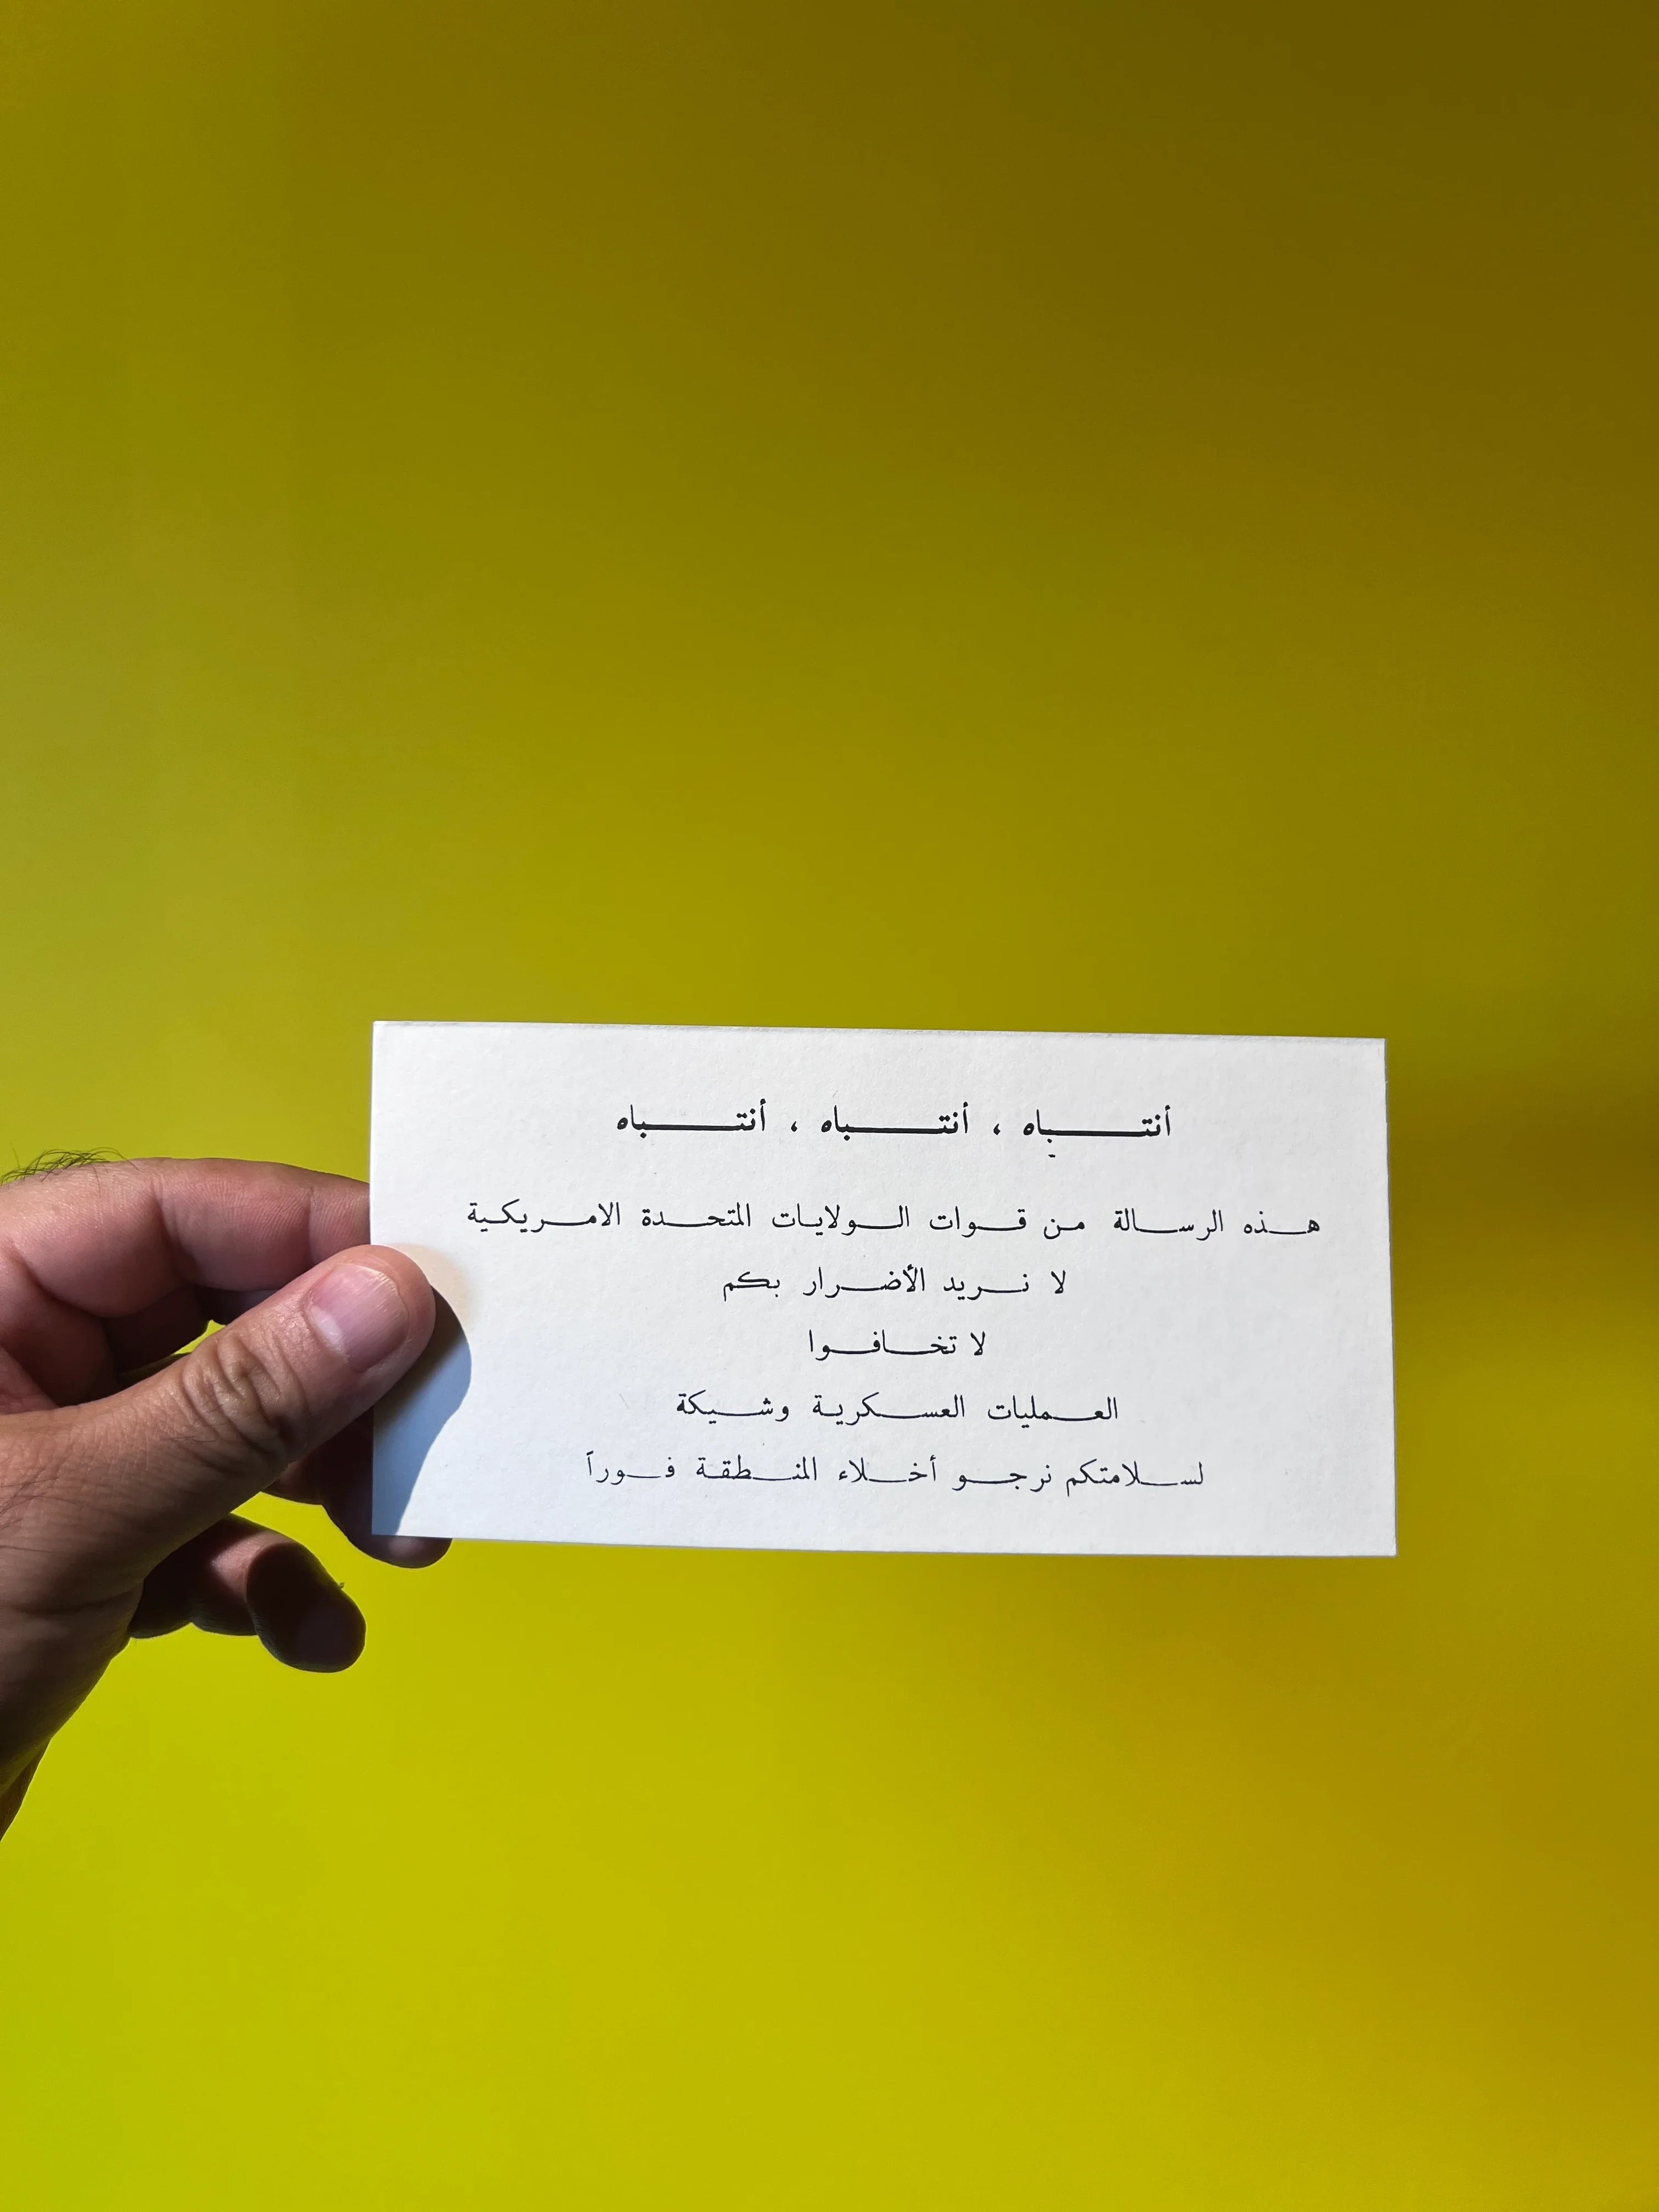 أنتـــباه ، أنتـــباه ، أنتـــباه
هـذه الرسـالة من قـوات الـولايـات المتحـدة الامـريكـية
لا نـريد الأضـرار بكم
لا تخـافـوا
العـمليات العسـكريـة وشـيكة
لسـلامتكم نرجـو أخـلاء المنـطقـة فـوراً